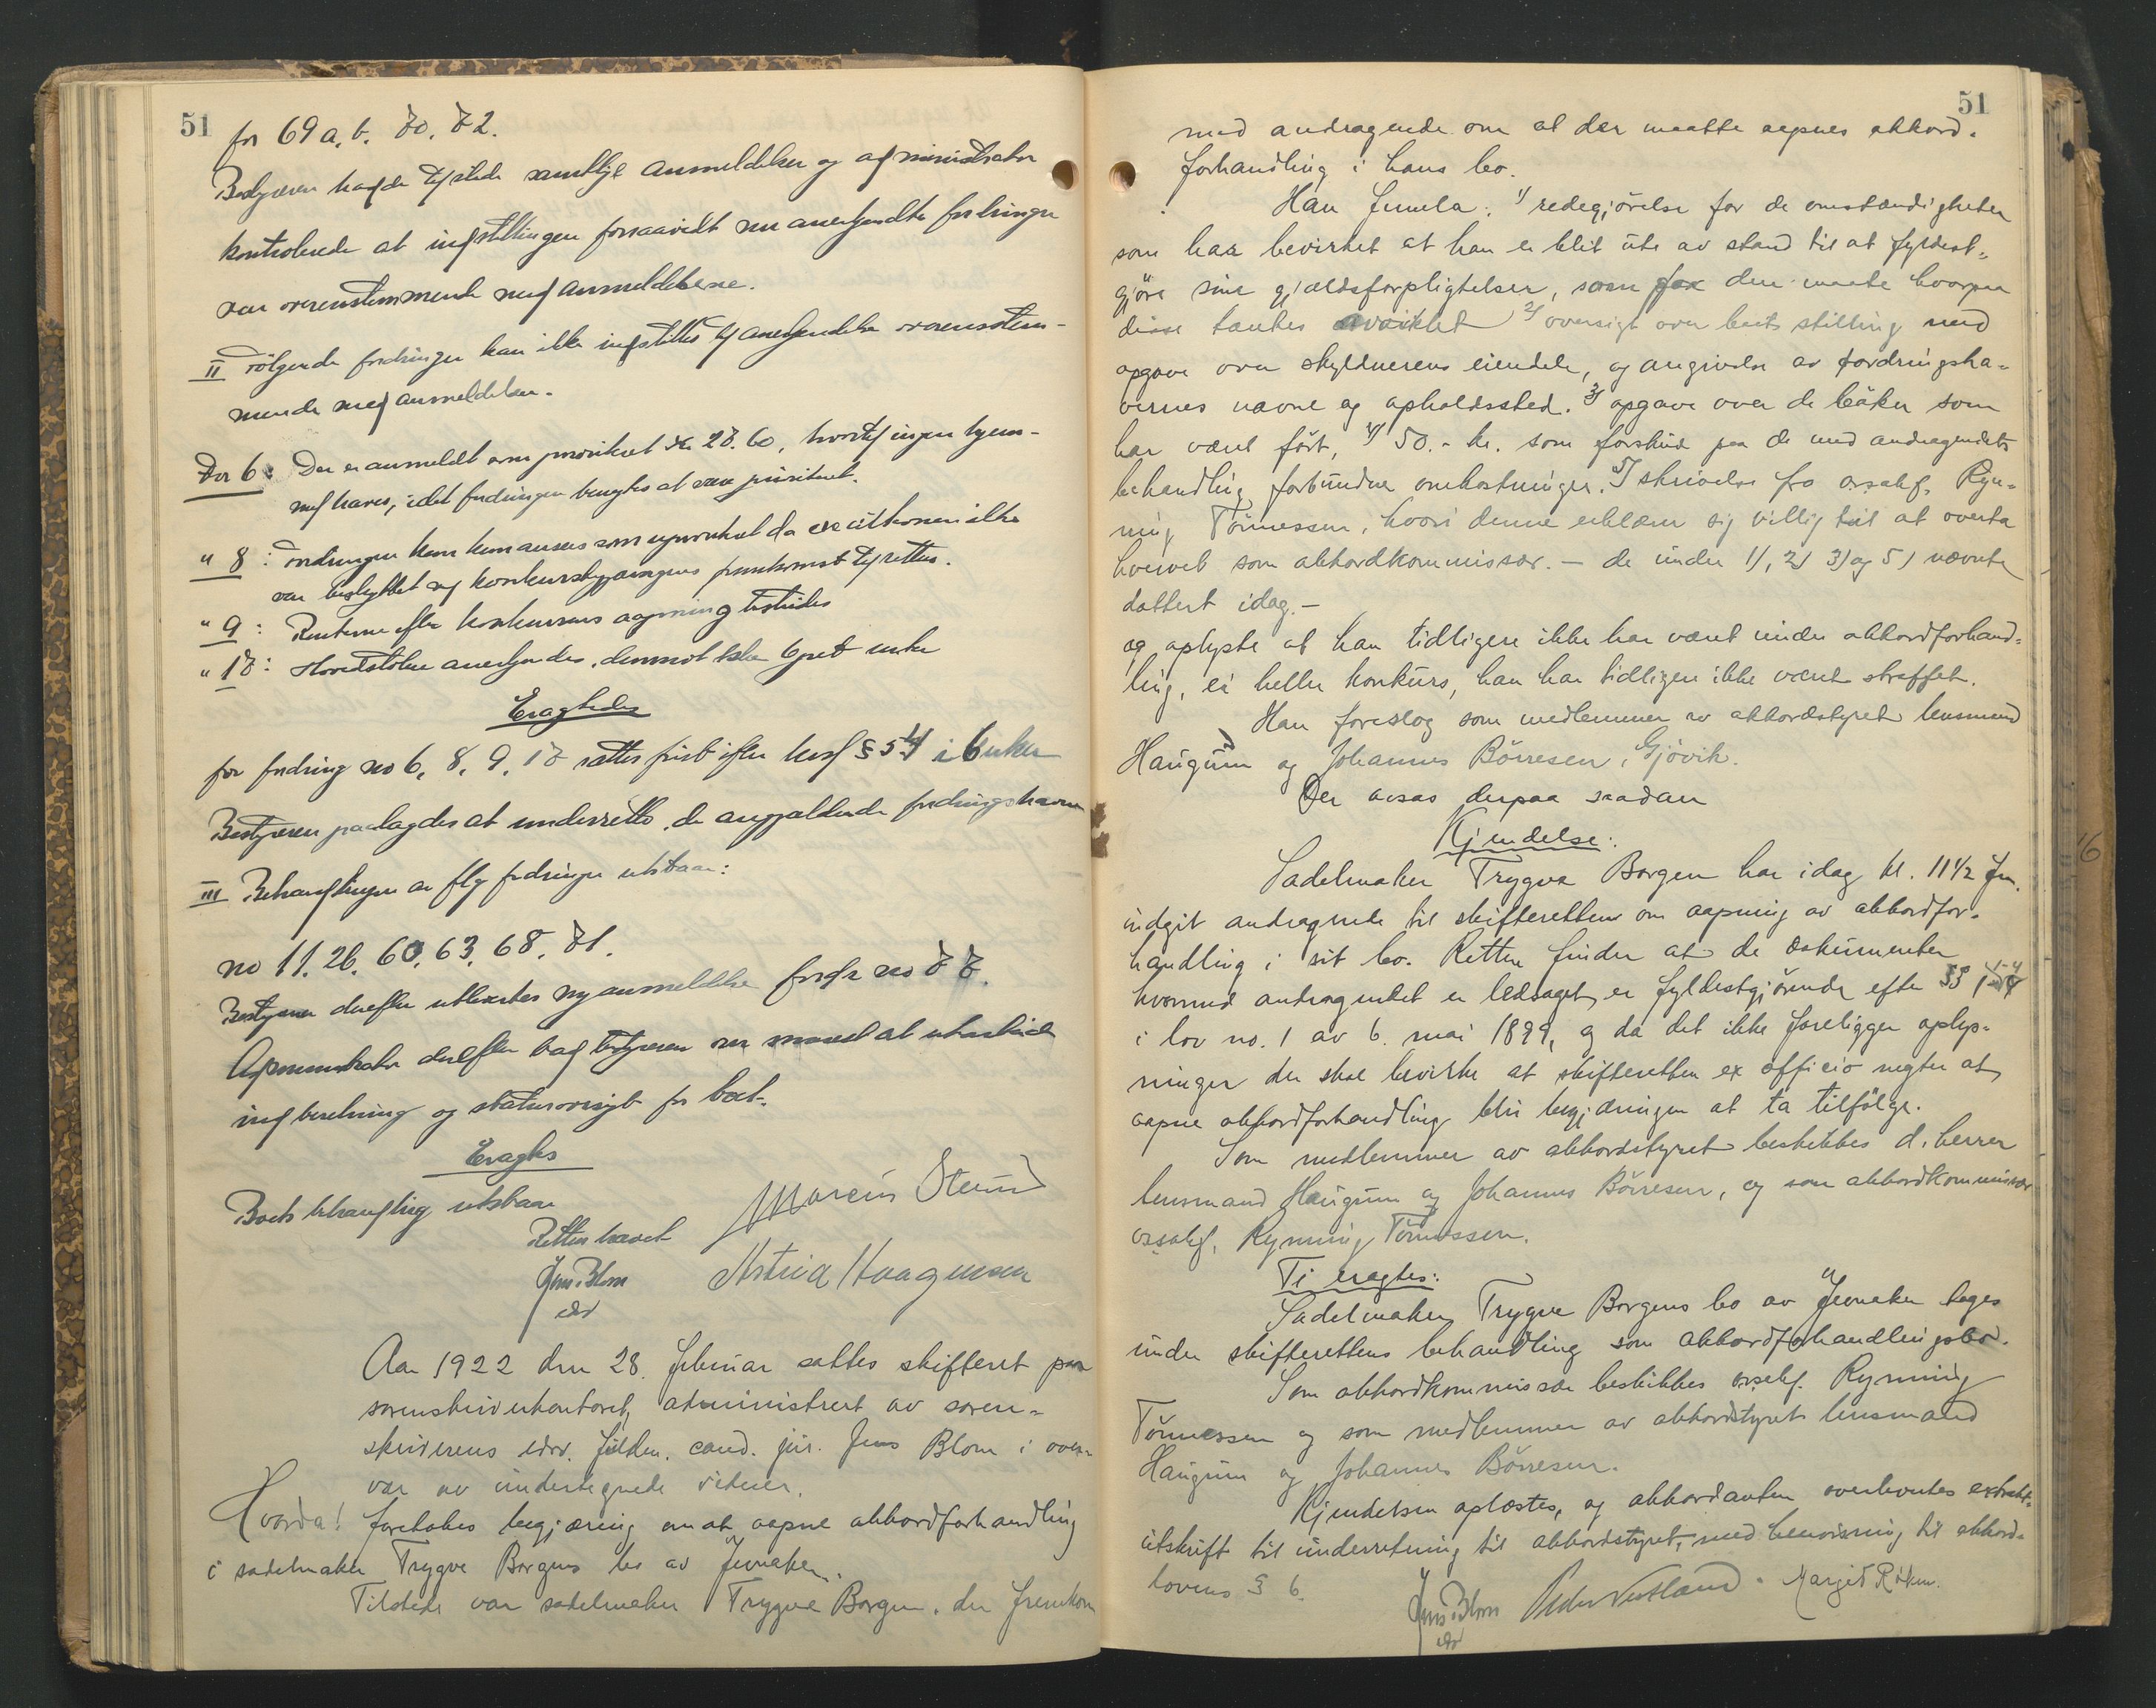 51
for 69 a, b. 70. 72.
Bestyreren hadde tilstede samtlige anmeldelser og administrator
kontrollerede at indstillingen forsaavidt nu anerkjendte fordringer
var overensstemmende med anmeldelserne.
II Følgende fordringer kan ikke indstilles til anerkjendelse overensstem-
mende med anmeldelsen.
For 6: Der er anmeldt som prioritert kr 27.60, hvortil ingen hjem-
mel haves, idet fordringen benegtes at være prioritert.
" 8: Fordringen kan kun ansees som uprioritert da executionen ikke
var besluttet ved konkursbegjæringens fremkomst til retten.
" 9: Renterne efter konkursens aapning bestrides
" 17: Hovedstolen anerkjendes, derimot ikke
Eragtedes
for fordring no 6, 8, 9, 17 sættes frist efter kosl § 54 i 6 uker
Bestyreren paalagdes at underrette de angjældende fordringshavere
III Behandlingen av flg fordringer utstaar:
no 11. 26. 60. 63. 68. 71.
Bestyreren derefter ny anmeldelse fordr no 77.
Administrator derefter bad bestyreren om snarest at utarbeide
indberetning og statusoversigt for boet.
Eragtes
Boets behandling utstaar
Retten hævet
Jens Blom
edv
Marcus Stensrud
Astrid Haagensen
Aar 1922 den 28. februar sattes skifteret paa
sorenskriverkontoret, administrert av soren-
skriverens edsv. fuldm. cand. jur. Jens Blom i over-
vær av undertegnede vidner.
Hvorda! foretokes begjæring om at aapne akkordforhandling
i sadelmaker Trygve Borgens bo av Jevnaker.
Tilstede var sadelmaker Trygve Borgen, der fremkom
51
med andragende om at der maatte aapnes akkord-
forhandling i hans bo.
Han fremla: 1) redegjörelse for de omstændigheter
som har bevirket at han er blit ute av stand til at fyldest-
gjöre sine gjældsforpligtelser, samt den maate hvorpaa
disse tænkes avviklet 2) oversigt over boets stilling med
opgave over skyldnerens eiendele, og angivelse av fordringsha-
vernes navne og opholdssted. 3) opgave over de böker som
har været fört, 4) 50.- kr. som forskud paa de med andragendets
behandling forbundne omkostninger. 5) skrivelse fra o.r.sakf. Ryn-
ning Tönnessen, hvori denne erklærer sig villig til at overta
hvervet som akkordkommissær. - de under 1), 2) 3) og 5) nævnte
datert idag. -
og oplyste at han tidligere ikke har været under akkordforhand-
ling, ei heller konkurs, han har tidligere ikke været straffet.
Han foreslog som medlemmer av akkordstyret lensmand
Haugum og Johannes Börresen, Gjövik.
Der avsas derpaa saadan
Kjendelse:
Sadelmaker Trygve Borgen har idag kl. 11 1/2 fm.
indgit andragende til skifteretten om aapning av akkordfor-
handling i sit bo. Retten finder at de dokumenter
hvormed andragendet er ledsaget, er fyldestgjörende efter §§ 1-4
i lov no. 1 av 6. mai 1899, og da det ikke foreligger oplys-
ninger der skal bevirke at skifteretten ex officio negter at
aapne akkordforhandling blir begjæringen at ta tilfölge.
Som medlemmer av akkordstyret beskikkes d. herrer
lensmand Haugum og Johannes Börresen, og som akkordkommissær
o.r.sakf. Rynning Tönnessen.
Ti eragtes:
Sadelmaker Trygve Borgens bo av Jevnaker tages
under skifterettens behandling som akkordforhandlingsbo.
Som akkordkommissær beskikkes o.r.sakf. Rynning
Tönnessen og som medlemmer av akkordstyret lensmand
Haugum og Johannes Börresen.
Kjendelsen oplæstes, og akkordanten overlevertes extrakt-
utskrift til underretning til akkordstyret, med henvisning til akkord-
lovens § 6.
Jens Blom
edv
Margit
16